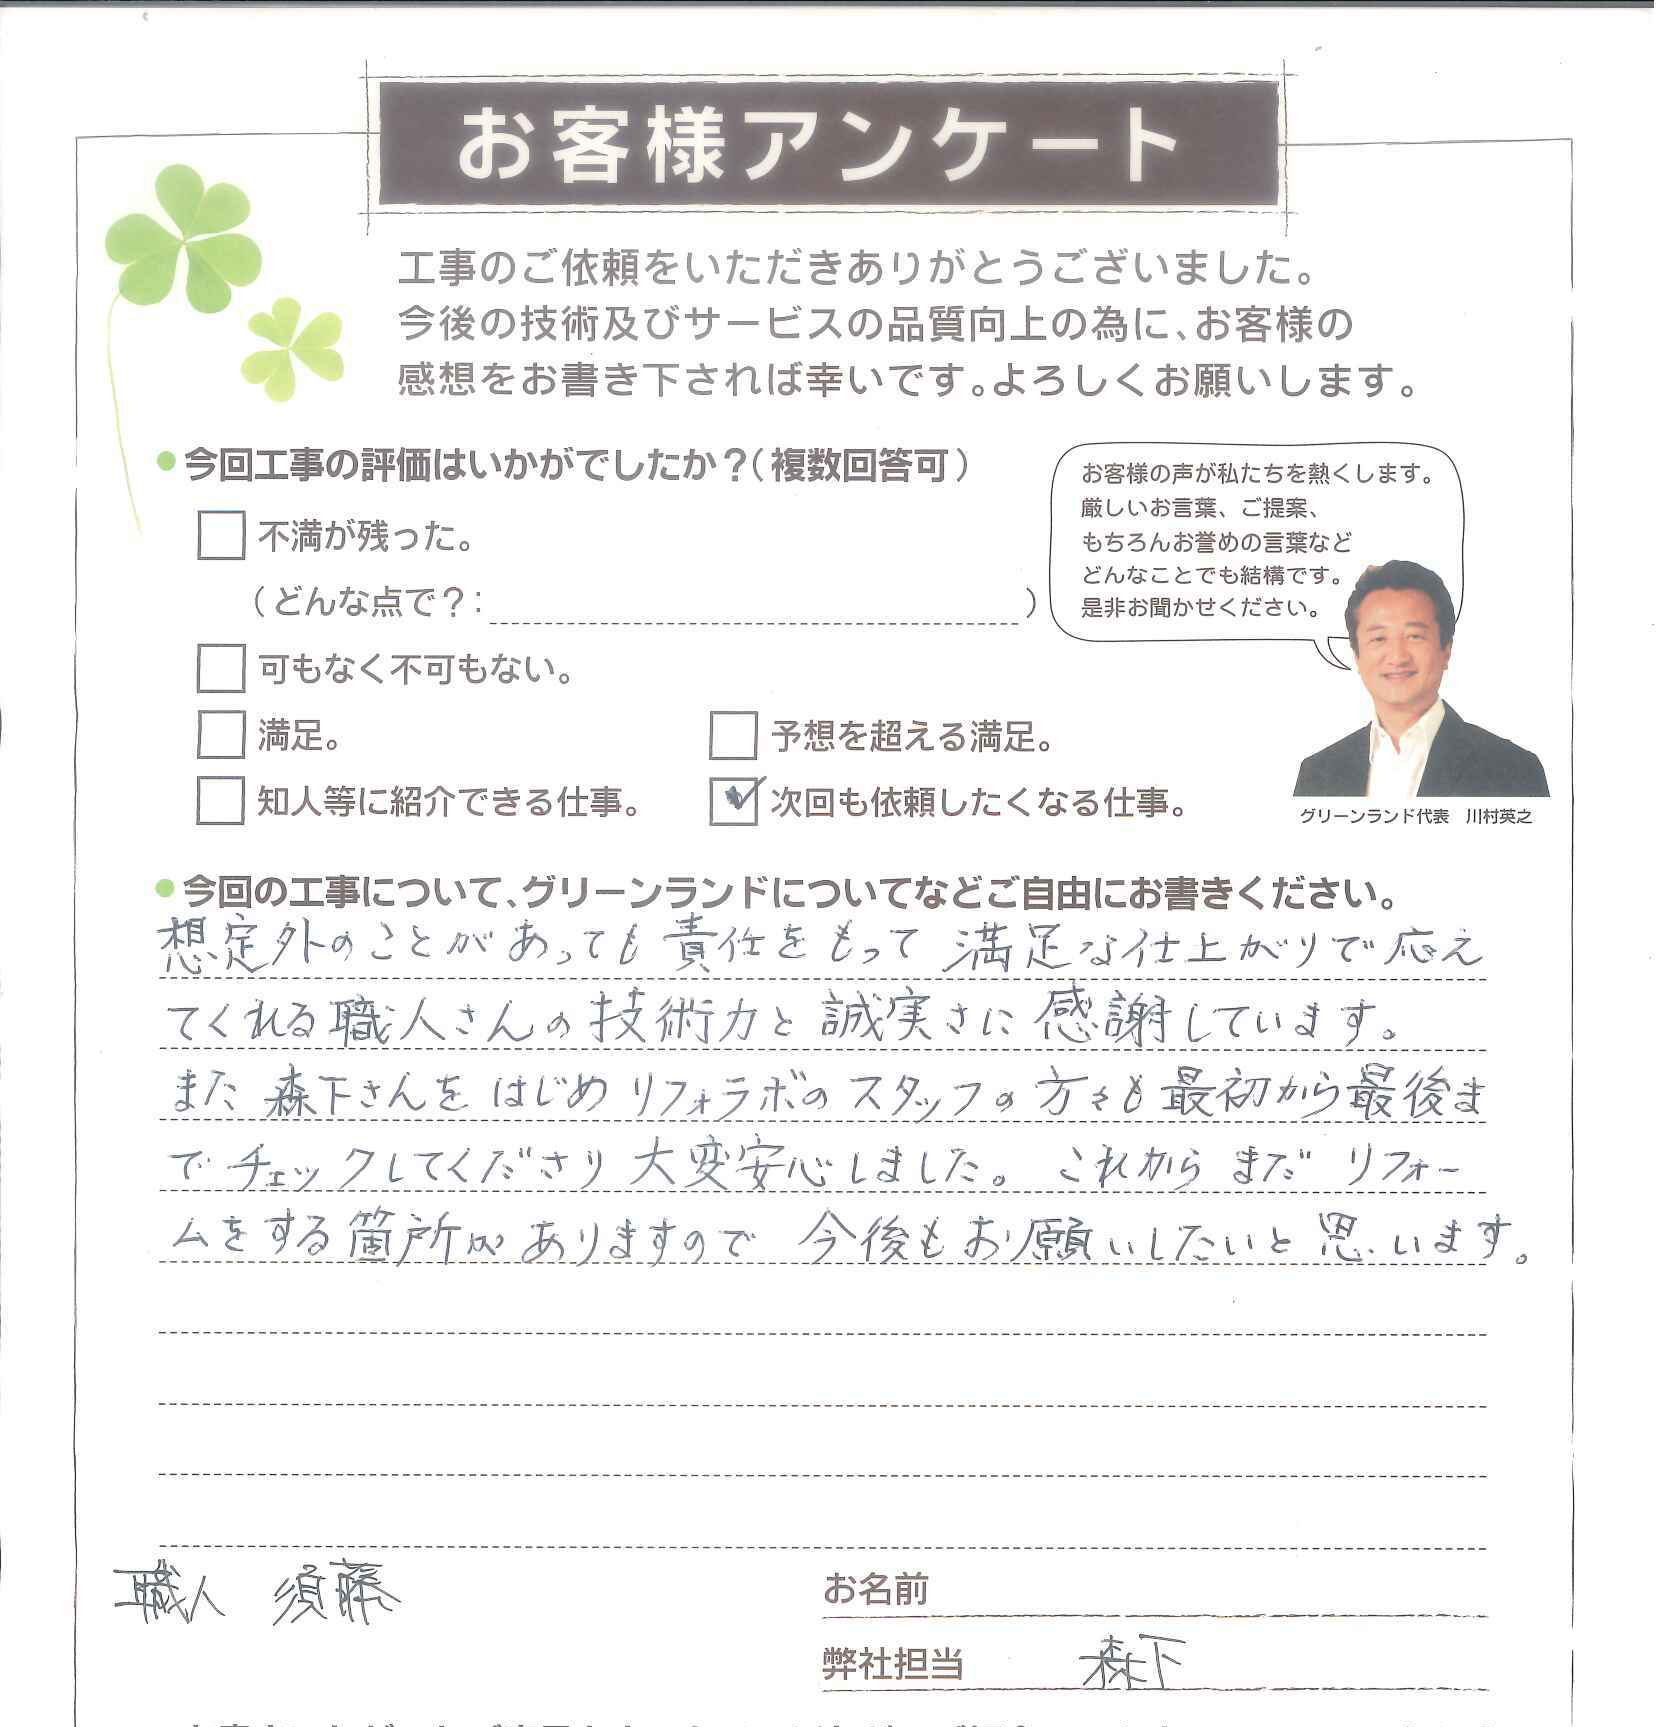 お客様アンケート
工事のご依頼をいただきありがとうございました。
今後の技術及びサービスの品質向上の為に、お客様の
感想をお書き下されば幸いです。よろしくお願いします。
今回工事の評価はいかがでしたか？（複数回答可）
不満が残った。
（どんな点で？： ）
可もなく不可もない。
満足。
予想を超える満足。
知人等に紹介できる仕事。
次回も依頼したくなる仕事。
お客様の声が私たちを熱くします。
厳しいお言葉、ご提案、
もちろんお誉めの言葉など
どんなことでも結構です。
是非お聞かせください。
グリーンランド代表　川村英之
今回の工事について、グリーンランドについてなどご自由にお書きください。
想定外のことがあっても責任をもって満足な仕上がりで応え
てくれる職人さんの技術力と誠実さに感謝しています。
また森下さんをはじめリフォラボのスタッフの方々も最初から最後ま
でチェックしてくださり大変安心しました。これからまだリフォー
ムをする箇所がありますので今後もお願いしたいと思います。
職人　須藤
お名前
弊社担当　森下